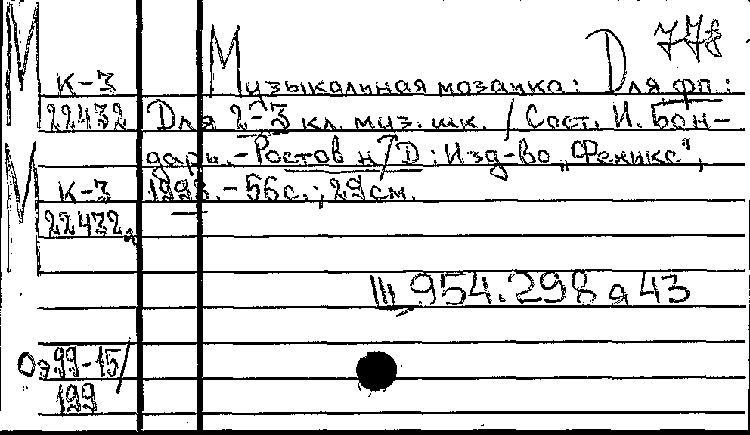 М К-3
22432
М К-3
22432а
Музыкальная мозаика: Для фп.:
Для 2-3 кл. муз. шк. / Сост. И. Бон-
дарь. - Ростов н/Д: Изд-во „Феникс",
1998. - 56 с.; 29 см.
Ш 954.298 я 43
Оэ 99-15/
199